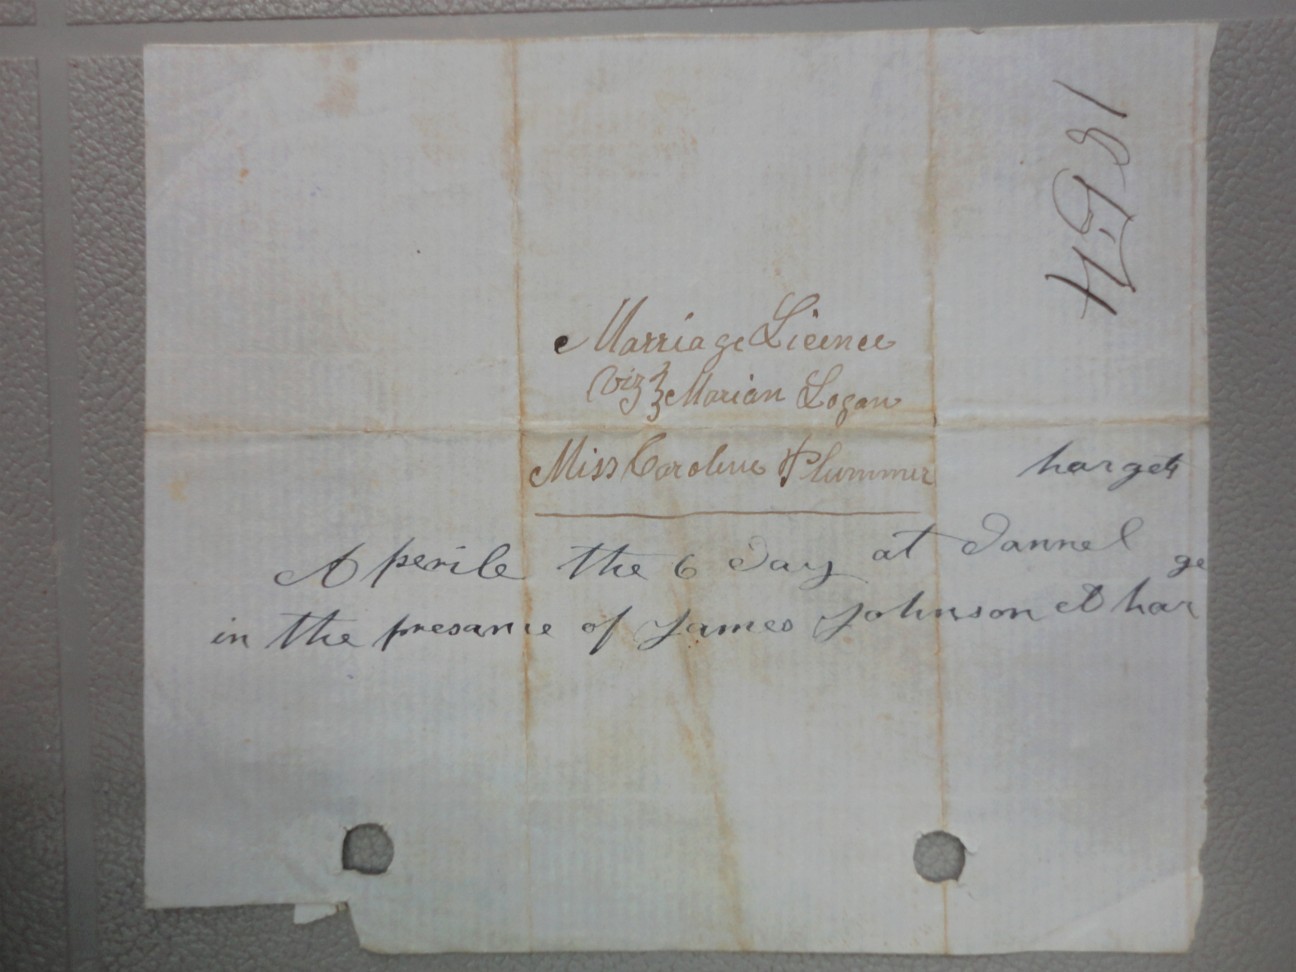 1854
Marriage Licence
viz Marian Logan
Miss Caroline Plummer
hargets
Aperile the 6 Day at Dannel
in the presance of James Johnson & har
ge